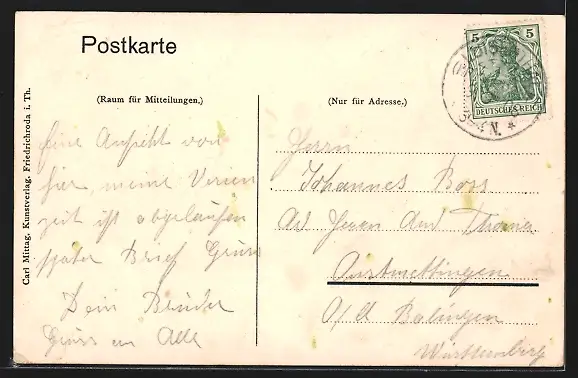 Postkarte
(Raum für Mitteilungen.)
(Nur für Adresse.)
5 5
DEUTSCHES REICH
Eine Ansicht von
hier, meine Verien
zeit ist abgelaufen
später Brief Gruss
Dein Bruder
Gruss an Alle
Herrn
Johannes Boss
Ad Herrn And
Onstmettingen
O/A Balingen
Württemberg
Carl Mittag, Kunstverlag, Friedrichroda i. Th.